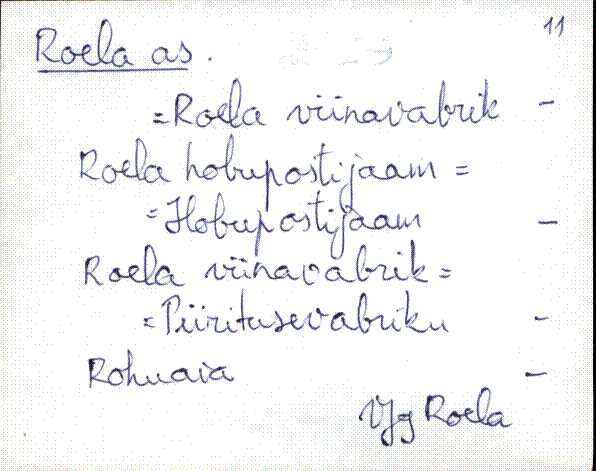 11
Roela as.
= Roela viinavabrik –
Roela hobupostijaam =
= Hobupostijaam –
Roela viinavabrik =
= Piiritusevabriku –
Rohuaia –
VJg Roela